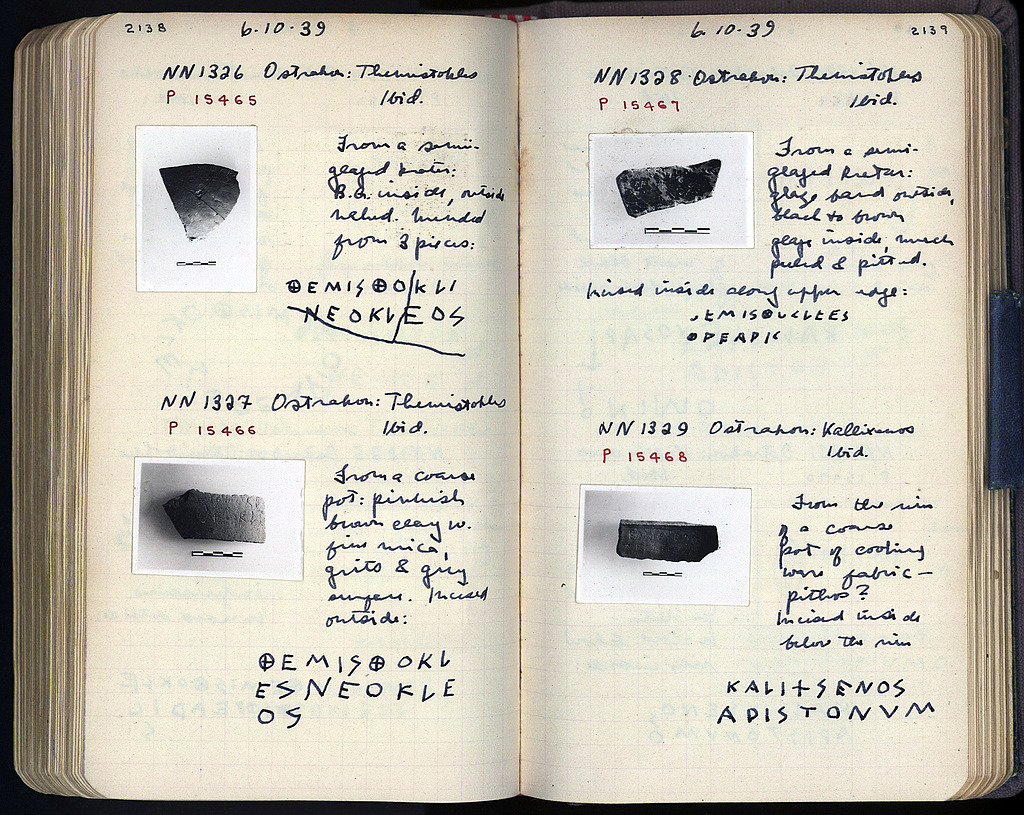 2138
6·10·39
NN 1326 Ostrakon: Themistokles
P 15465
Ibid.
From a semi-
glazed krater:
B.G. inside, outside
naked. Mended
from 3 pieces:
⊕EMIS⊕OKLI
NEOKLEOS
NN 1327 Ostrakon: Themistokles
P 15466
Ibid.
From a coarse
pot: pinkish
brown clay w.
fine mica,
grits & grey
surface. Incised
outside:
⊕EMIS⊕OKL
ESNEOKLE
OS
6·10·39
2139
NN 1328 Ostrakon: Themistokles
P 15467
Ibid.
From a semi-
glazed krater:
glaze band outside,
black to brown
glaze inside, much
peeled & pitted.
Incised inside along upper edge:
NN 1329 Ostrakon: Kallixenos
P 15468
Ibid.
From the rim
of a coarse
pot of cooking
ware fabric —
pithos?
Incised inside
below the rim
KALI+SENOS
APISTONVM